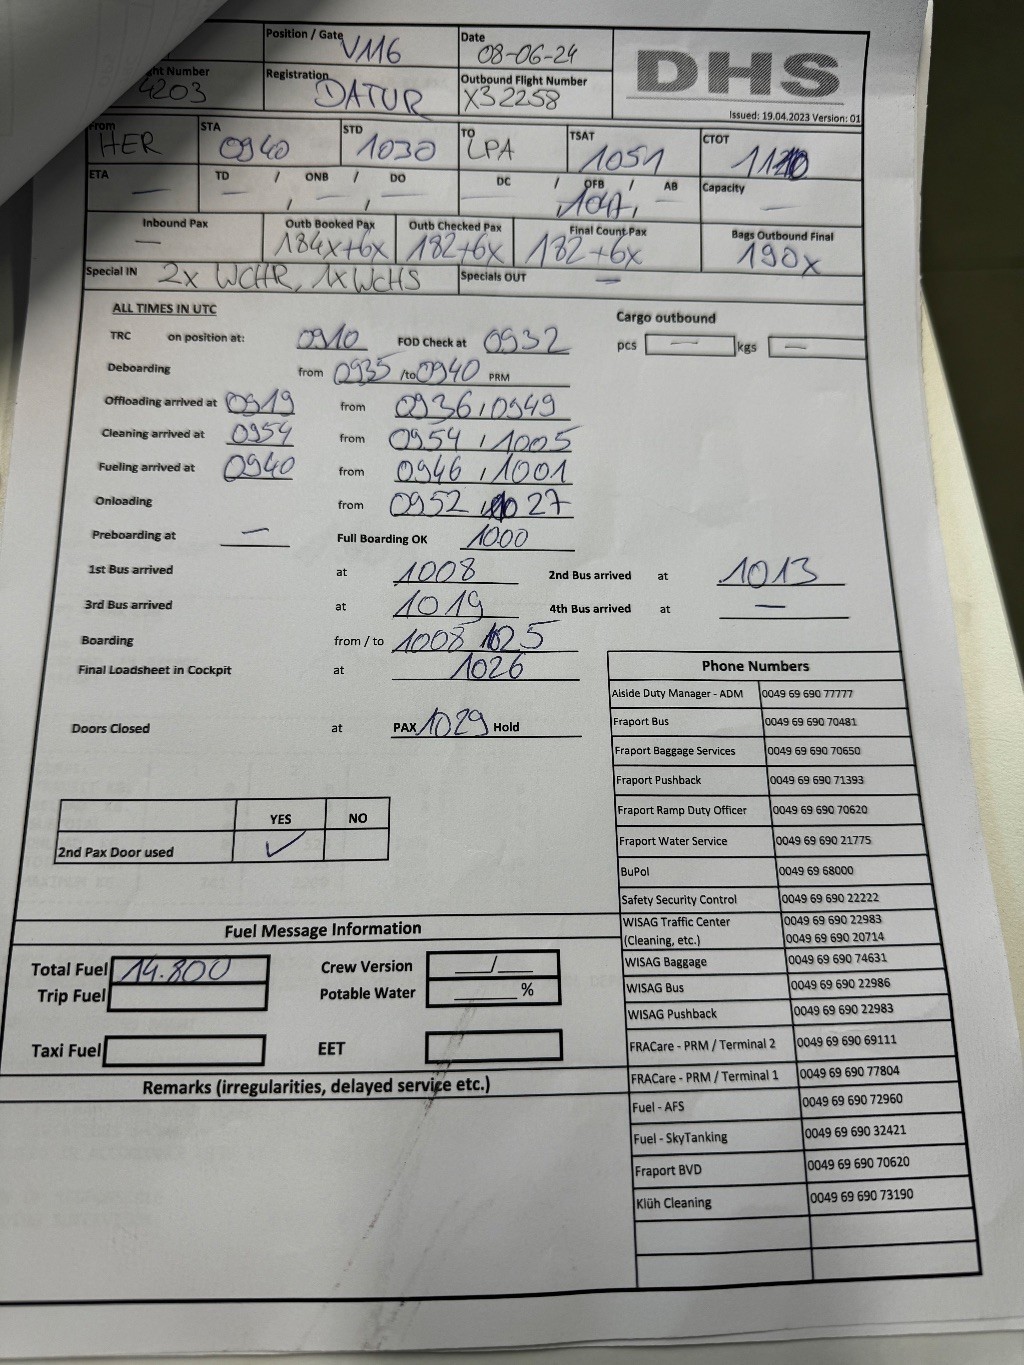 Position / Gate V116 Date 08-06-24 DHS
ht Number 4203 Registration DATUR Outbound Flight Number X32258
Issued: 19.04.2023 Version: 01
From HER STA 0940 STD 1030 TO LPA TSAT 1051 CTOT
ETA — TD / ONB / DO DC / OFB / AB Capacity —
Inbound Pax — Outb Booked Pax 184x+6x Outb Checked Pax 182+6x Final Count Pax 182+6x Bags Outbound Final 190x
Special IN 2x WCHR, 1x WCHS Specials OUT —
ALL TIMES IN UTC Cargo outbound
TRC on position at: 0910 FOD Check at 0932 pcs — kgs —
Deboarding from 0935 /to 0940 PRM
Offloading arrived at 0919 from 0936 , 0949
Cleaning arrived at 0954 from 0954 , 1005
Fueling arrived at 0940 from 0946 , 1001
Onloading from 0952 , 1027
Preboarding at — Full Boarding OK 1000
1st Bus arrived at 1008 2nd Bus arrived at 1013
3rd Bus arrived at 1019 4th Bus arrived at —
Boarding from / to 1008 1025
Final Loadsheet in Cockpit at 1026
Doors Closed at PAX 1029 Hold
YES NO
2nd Pax Door used ✓
Phone Numbers
Alside Duty Manager - ADM 0049 69 690 77777
Fraport Bus 0049 69 690 70481
Fraport Baggage Services 0049 69 690 70650
Fraport Pushback 0049 69 690 71393
Fraport Ramp Duty Officer 0049 69 690 70620
Fraport Water Service 0049 69 690 21775
BuPol 0049 69 68000
Safety Security Control 0049 69 690 22222
WISAG Traffic Center 0049 69 690 22983
(Cleaning, etc.) 0049 69 690 20714
WISAG Baggage 0049 69 690 74631
WISAG Bus 0049 69 690 22986
WISAG Pushback 0049 69 690 22983
FRACare - PRM / Terminal 2 0049 69 690 69111
FRACare - PRM / Terminal 1 0049 69 690 77804
Fuel - AFS 0049 69 690 72960
Fuel - SkyTanking 0049 69 690 32421
Fraport BVD 0049 69 690 70620
Klüh Cleaning 0049 69 690 73190
Fuel Message Information
Total Fuel 14.800 Crew Version ___/___
Trip Fuel Potable Water ______ %
Taxi Fuel EET
Remarks (irregularities, delayed service etc.)